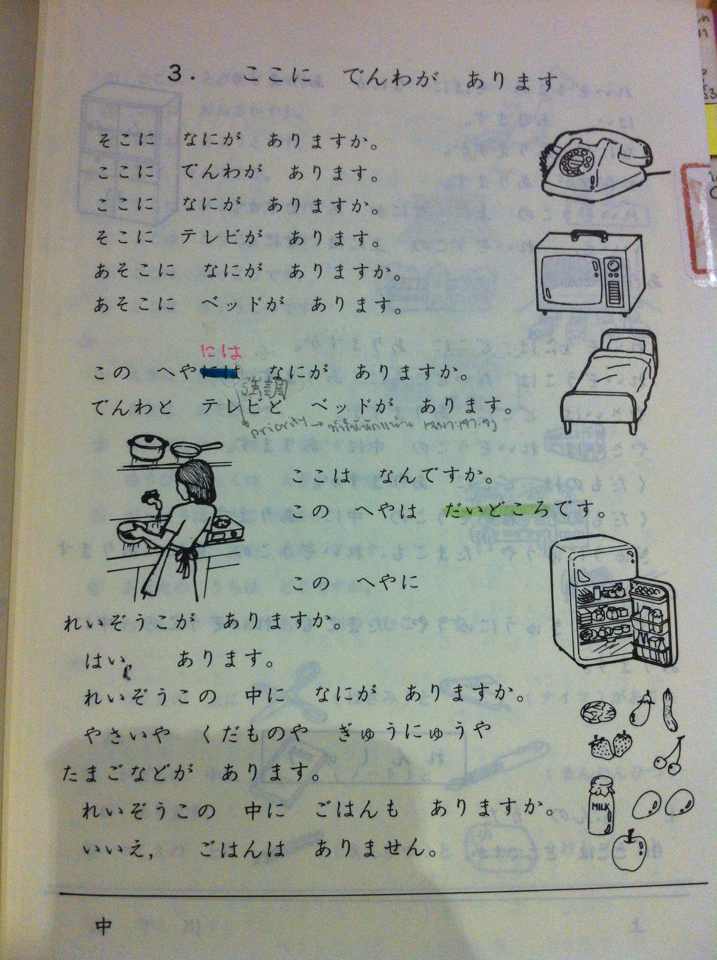 3. ここに でんわが あります
そこに なにが ありますか。
ここに でんわが あります。
ここに なにが ありますか。
そこに テレビが あります。
あそこに なにが ありますか。
あそこに ベッドが あります。
には
この へやには なにが ありますか。
強調
でんわと テレビと ベッドが あります。
priority
ここは なんですか。
この へやは だいどころです。
この へやに
れいぞうこが ありますか。
はい, あります。
れいぞうこの 中に なにが ありますか。
やさいや くだものや ぎゅうにゅうや
たまごなどが あります。
MILK
れいぞうこの 中に ごはんも ありますか。
いいえ, ごはんは ありません。
中